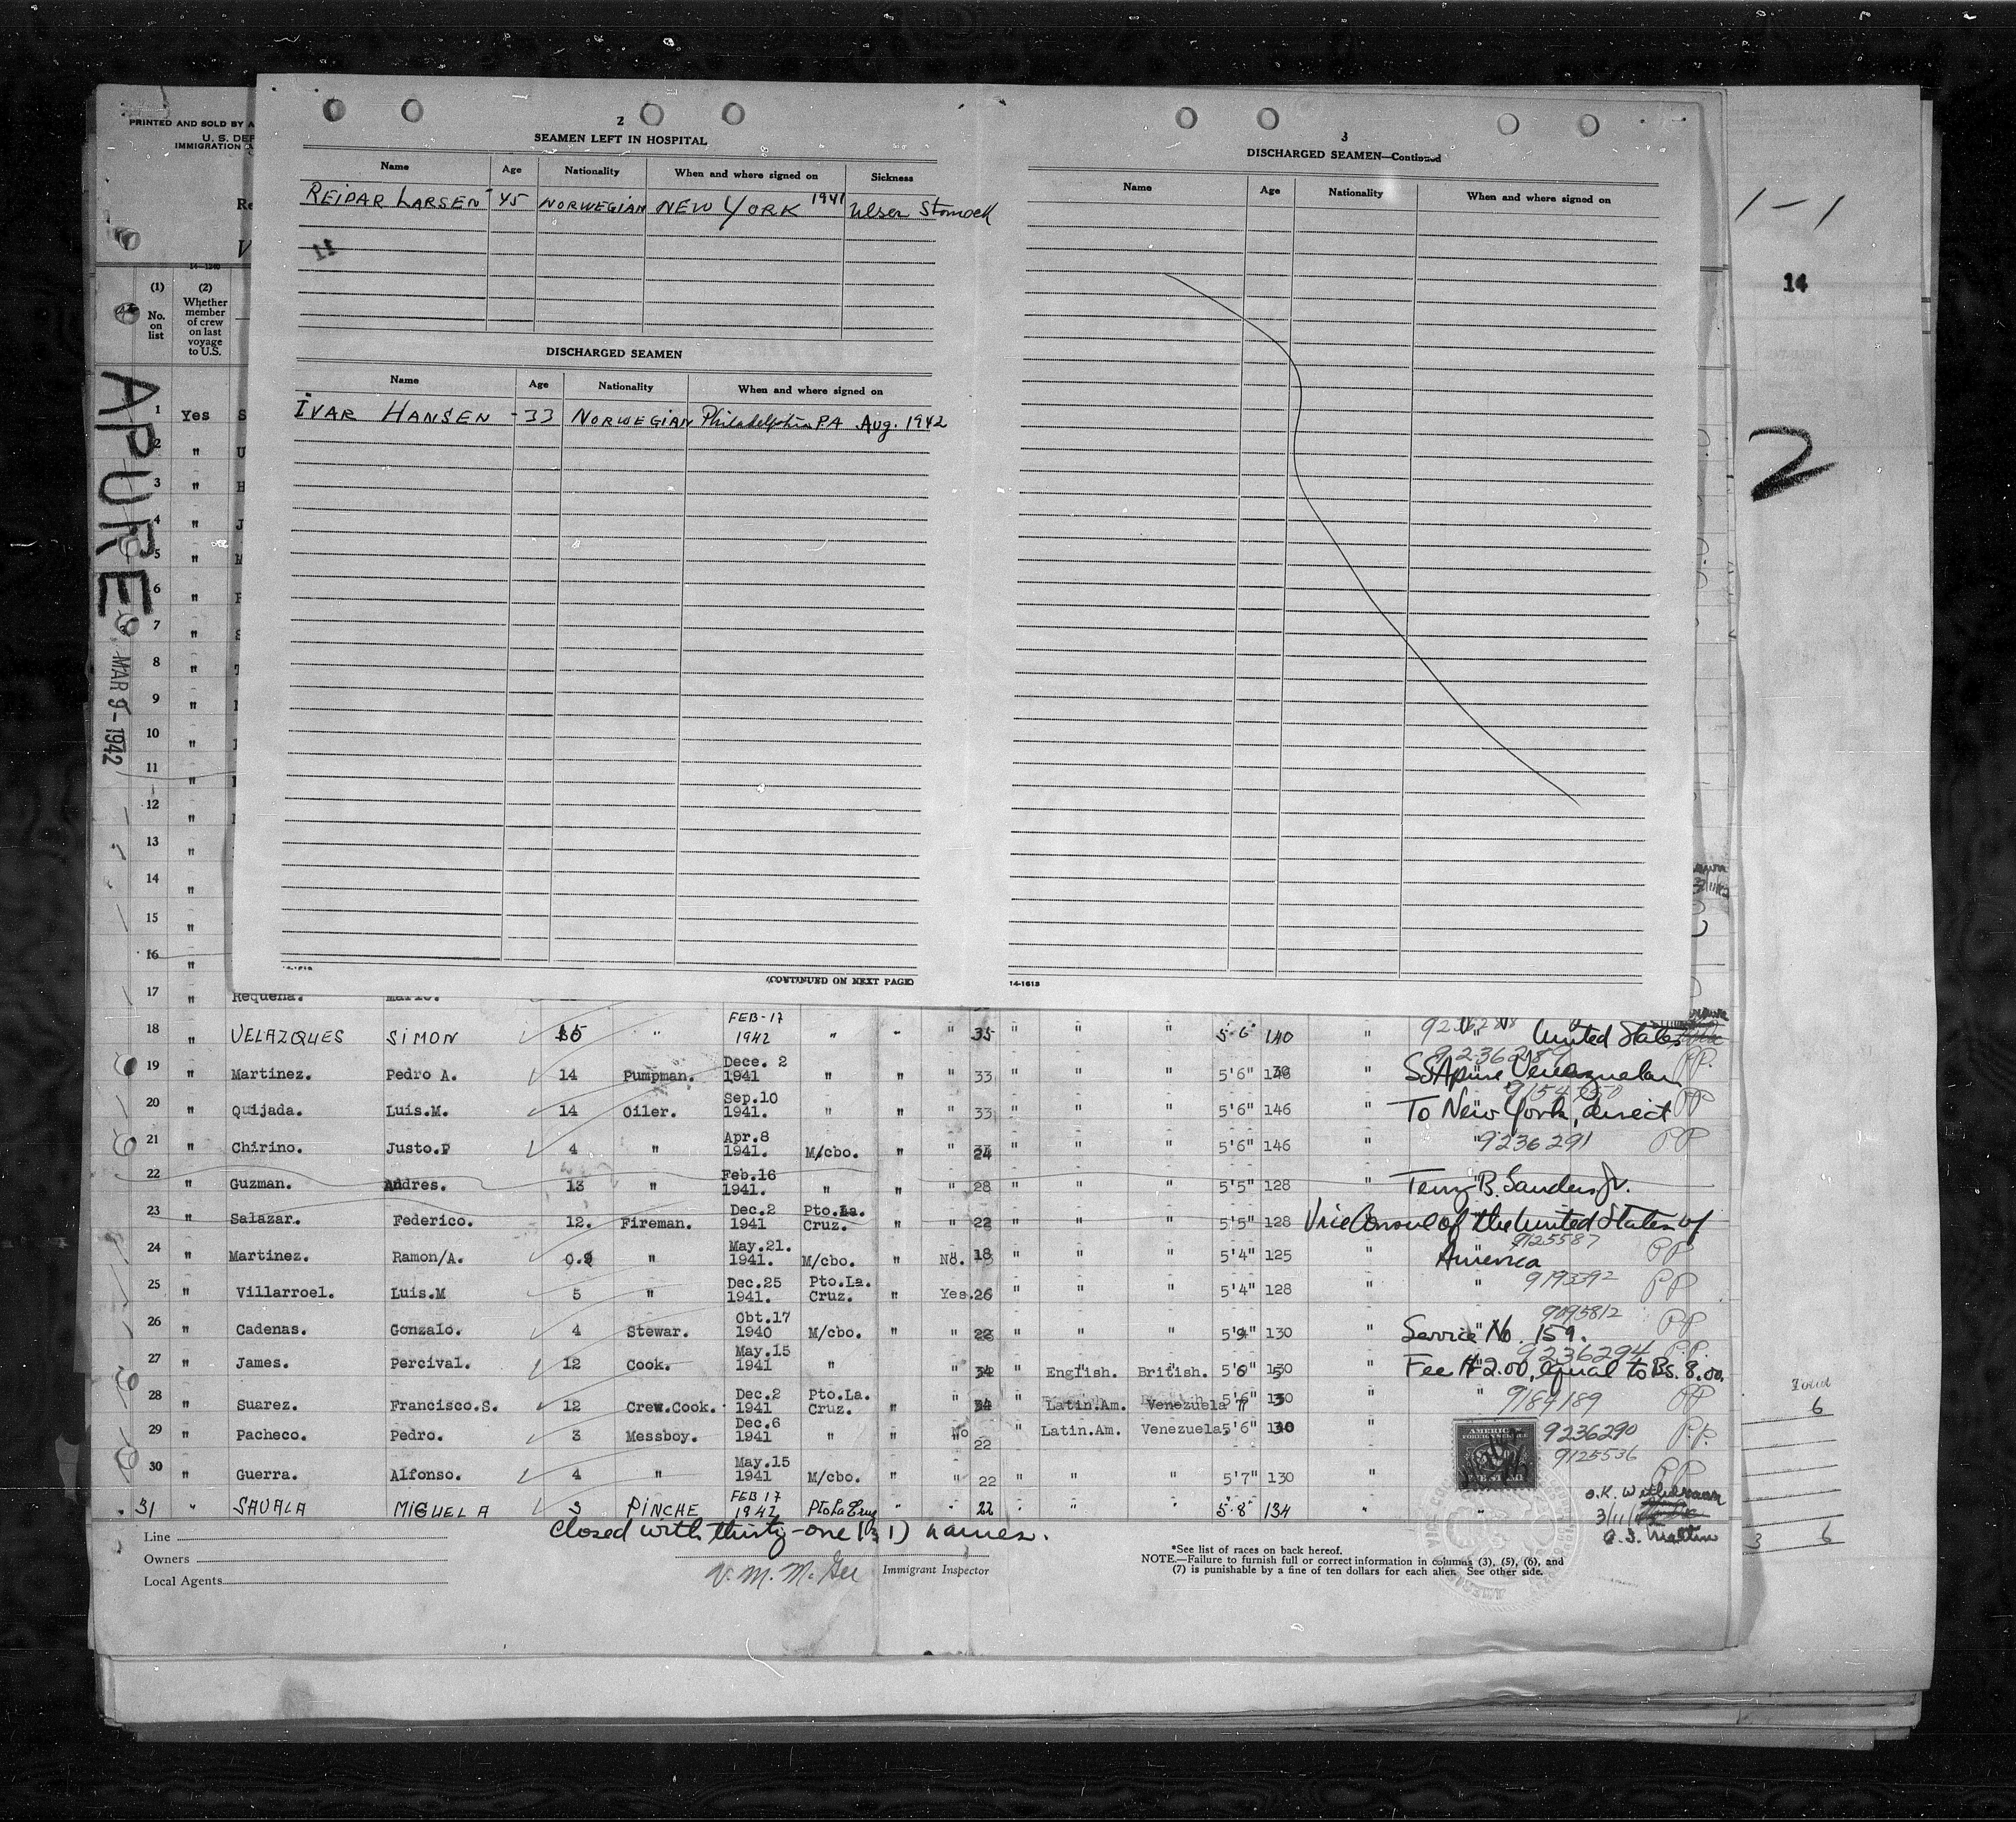 PRINTED AND SOLD BY
U. S. DEP
IMMIGRATION
2
SEAMEN LEFT IN HOSPITAL
Name Age Nationality When and where signed on Sickness
REIDAR LARSEN 45 NORWEGIAN NEW YORK 1941 Ulser Stomack
11
DISCHARGED SEAMEN
Name Age Nationality When and where signed on
IVAR HANSEN - 33 NORWEGIAN Philadelphia PA Aug. 1942
(CONTINUED ON NEXT PAGE)
3
DISCHARGED SEAMEN—Continued
Name Age Nationality When and where signed on
14-1613
1-1
14
2
APURE
MAR 9-1942
(1) No. on list
(2) Whether member of crew on last voyage to U.S.
1 Yes S
2 " U
3 " H
4 " J
5 " M
6 "
7 " S
8 " T
9 "
10 "
11 "
12 "
13 "
14 "
15 "
16 "
17 " Requena. Mario.
18 " VELAZQUES SIMON FEB-17 1942 " " " 35 " " " 5-6 140 " United States
19 " Martinez. Pedro A. 14 Pumpman. Dece. 2 1941 " " " 33 " " " 5'6" " SS Apure Venezuelan
20 " Quijada. Luis.M. 14 Oiler. Sep.10 1941. " " " 33 " " " 5'6" 146 " To New York, direct PP
21 " Chirino. Justo.P 4 " Apr.8 1941. M/cbo. " " 24 " " " 5'6" 146 " 9236291 PP
22 " Guzman. Andres. 13 " Feb.16 1941. " " " 28 " " " 5'5" 128 " Terry B. Sanders Jr.
23 " Salazar. Federico. 12. Fireman. Dec.2 1941 Pto.La. Cruz. " " 22 " " " 5'5" 128 Vice Consul of the United States of
24 " Martinez. Ramon/A. " May.21. 1941. M/cbo. " No. 18 " " " 5'4" 125 " America 9125587 PP
25 " Villarroel. Luis.M 5 " Dec.25 1941. Pto.La. Cruz. " Yes. 26 " " " 5'4" 128 " " 9193392 PP
26 " Cadenas. Gonzalo. 4 Stewar. Obt.17 1940 M/cbo. " " 22 " " " 130 " Service No. 159. 9095812 PP
27 " James. Percival. 12 Cook. May.15 1941 " " " 34 " English. British. " " Fee $2.00, equal to Bs. 8.00. 9236294 P.P.
28 " Suarez. Francisco.S. 12 Crew.Cook. Dec.2 1941 Pto.La. Cruz. " " 34 " Latin.Am. Venezuela 5'6" " " 9184189 PP
29 " Pacheco. Pedro. 3 Messboy. Dec.6 1941 " " No 22 " Latin.Am. Venezuela, 5'6" 130 " 9236290 P.P.
30 " Guerra. Alfonso. 4 " May.15 1941 M/cbo. " " 22 " " " 5'7" 130 " 9125536 PP
31 " SAVALA MIGUEL A 3 PINCHE FEB 17 1942 Pto La Cruz " " 22 " " " 5-8 134 " "
O.K.
3/11/
Total
6
3 6
Closed with thirty-one (31) names.
Line
Owners
Local Agents
Immigrant Inspector
*See list of races on back hereof.
NOTE.—Failure to furnish full or correct information in columns (3), (5), (6), and
(7) is punishable by a fine of ten dollars for each alien. See other side.